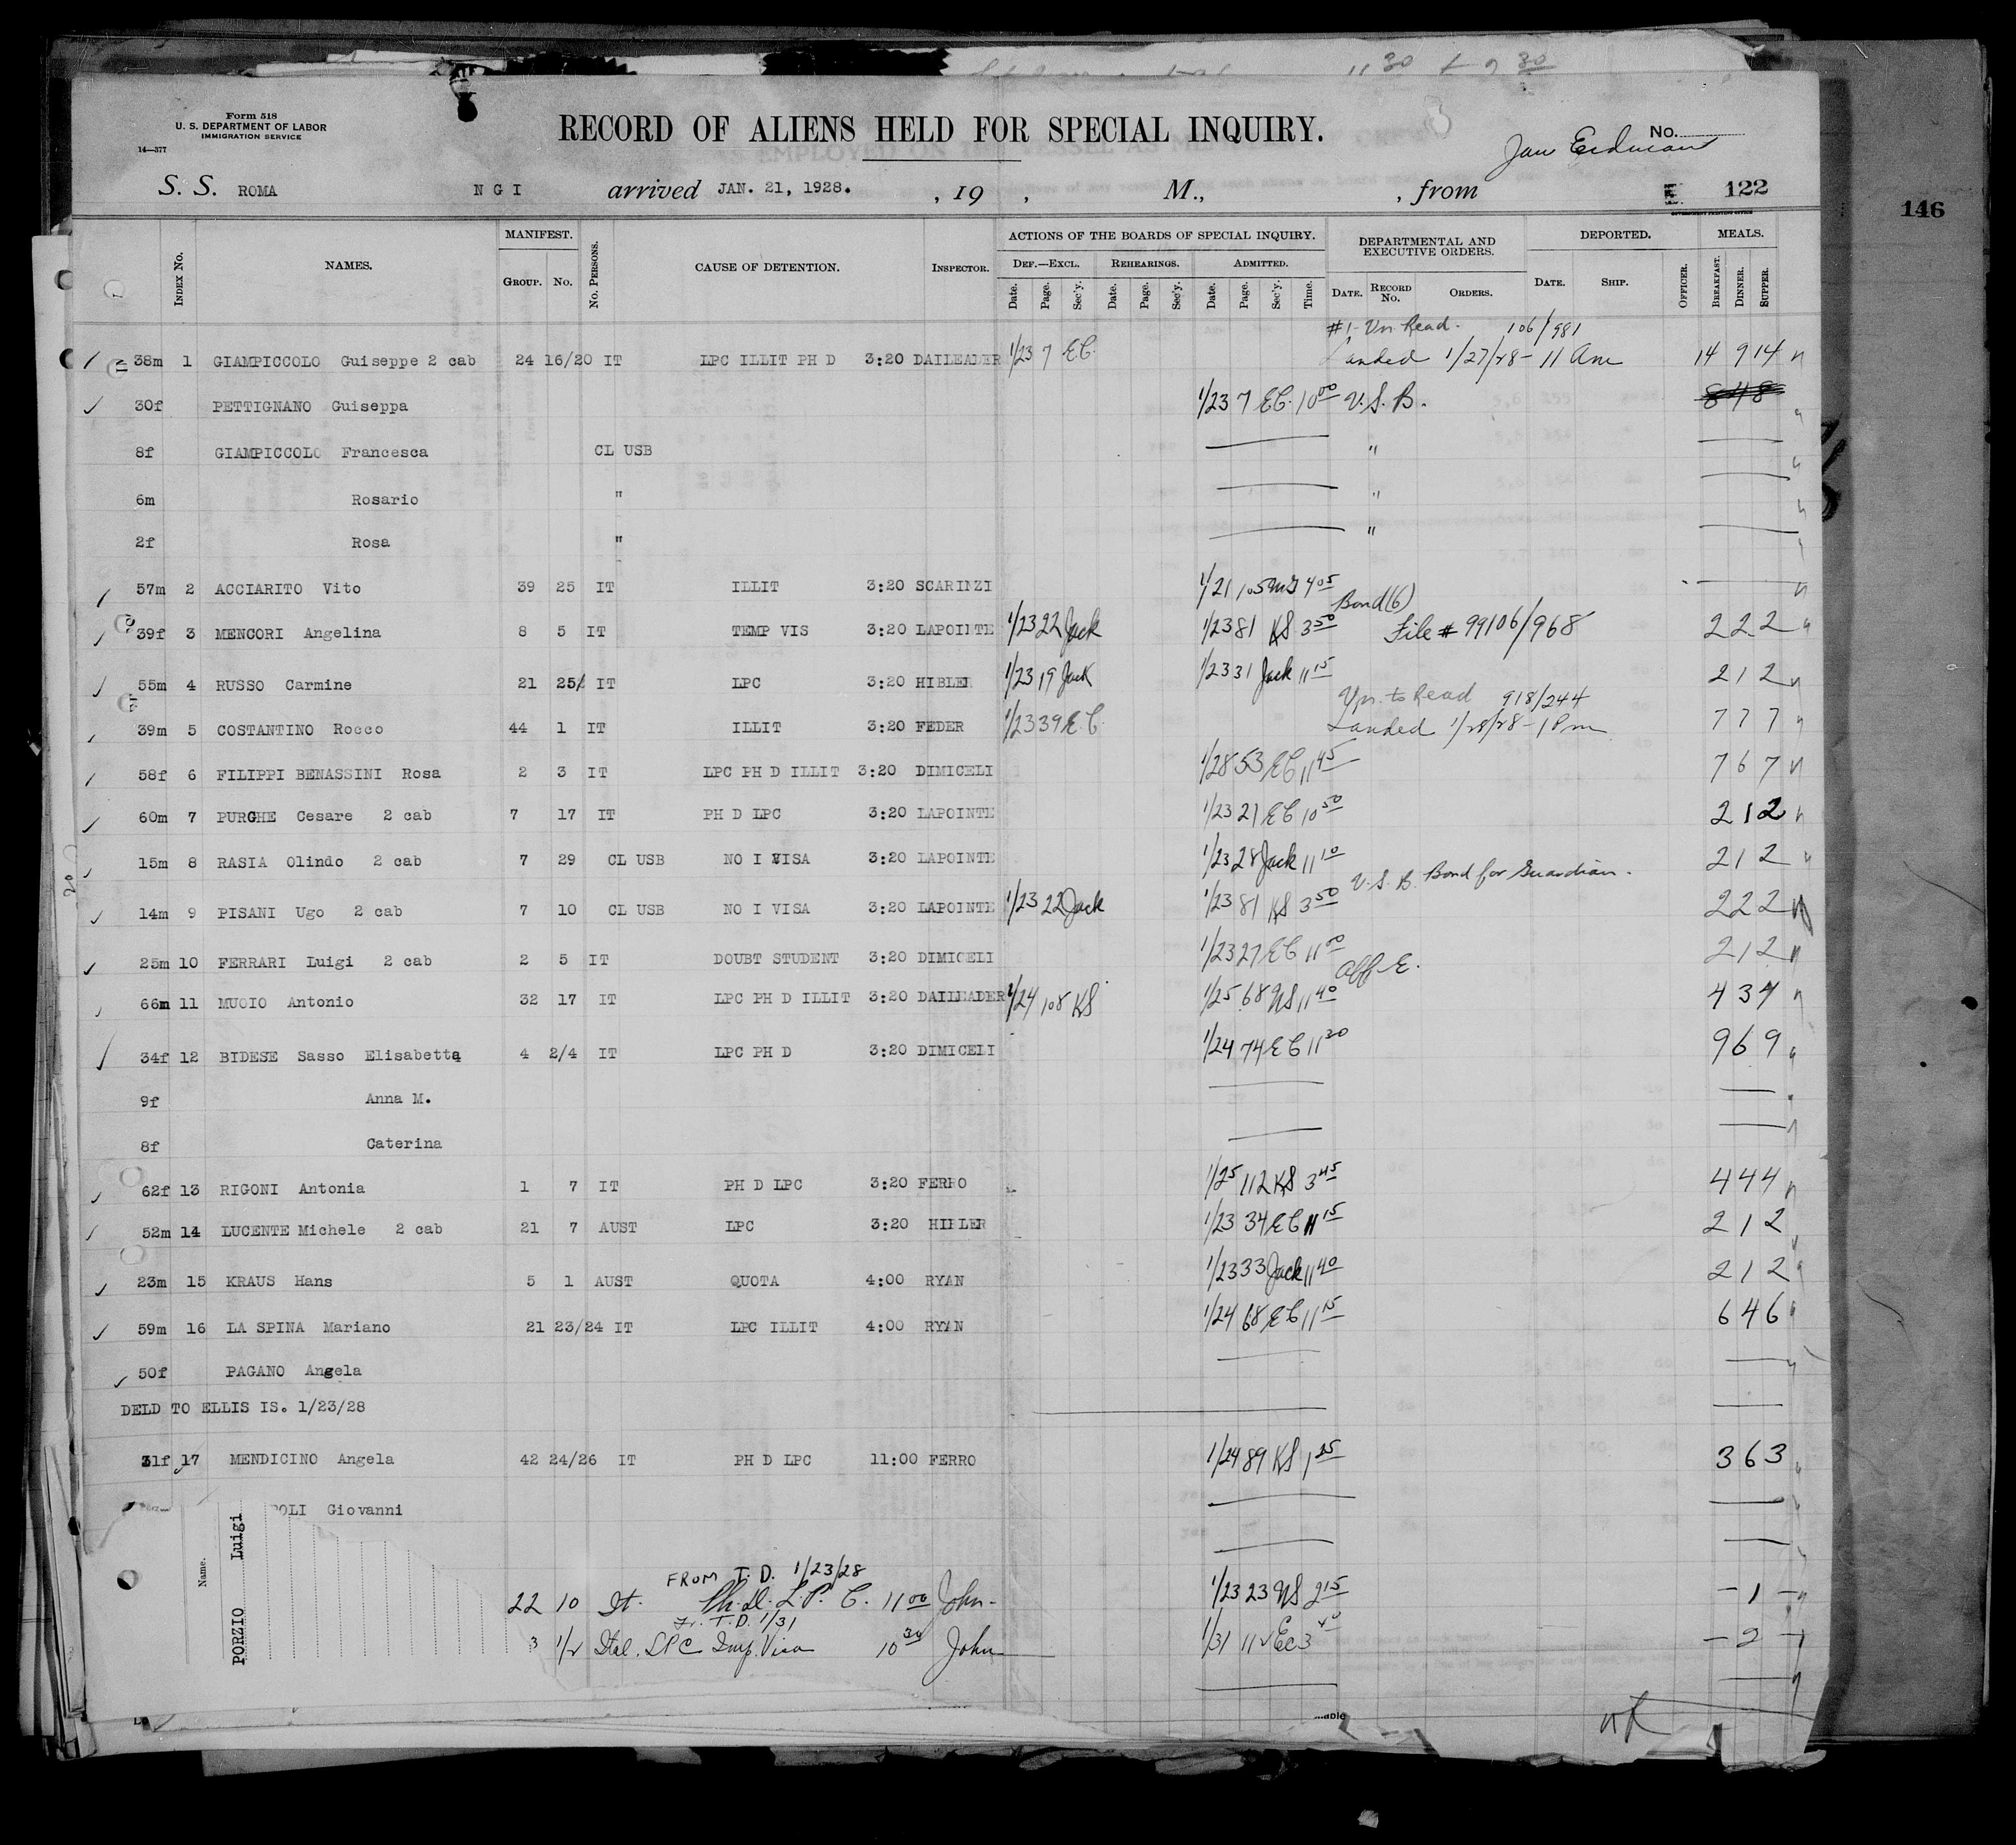 11 30
Form 518
U. S. DEPARTMENT OF LABOR
IMMIGRATION SERVICE
14—377
RECORD OF ALIENS HELD FOR SPECIAL INQUIRY.
No.
S. S. ROMA N G I arrived JAN. 21, 1928. , 19 , M., , from 122
GOVERNMENT PRINTING OFFICE
146
Index No. NAMES. MANIFEST. Group. No. No. Persons. CAUSE OF DETENTION. Inspector. ACTIONS OF THE BOARDS OF SPECIAL INQUIRY. Def.—Excl. Rehearings. Admitted. DEPARTMENTAL AND EXECUTIVE ORDERS. DEPORTED. MEALS.
Date. Page. Sec'y. Date. Page. Sec'y. Date. Page. Sec'y. Time. Date. Record No. Orders. Date. Ship. Officer. Breakfast. Dinner. Supper.
#1 - Un. Read. 106/981
38m 1 GIAMPICCOLO Guiseppe 2 cab 24 16/20 IT LPC ILLIT PH D 3:20 DAILEADER 1/23 7 EC. Landed 1/27/28 - 11 Am 14 9 14
30f PETTIGNANO Guiseppa 1/23 7 EC. 10 00 U.S.B. 8 4 8
8f GIAMPICCOLO Francesca CL USB "
6m Rosario " "
2f Rosa " "
57m 2 ACCIARITO Vito 39 25 IT ILLIT 3:20 SCARINZI 1/21 105 MG 4 05
Bond (6)
39f 3 MENCORI Angelina 8 5 IT TEMP VIS 3:20 LAPOINTE 1/23 22 Jack 1/23 81 KS 3 50 File # 99106/968 2 2 2
55m 4 RUSSO Carmine 21 25/ IT LPC 3:20 HIBLER 1/23 19 Jack 1/23 31 Jack 11 15 2 1 2
Un. to Read 918/244
39m 5 COSTANTINO Rocco 44 1 IT ILLIT 3:20 FEDER 1/23 39 EC. Landed 1/28/28 - 1 Pm 7 7 7
58f 6 FILIPPI BENASSINI Rosa 2 3 IT LPC PH D ILLIT 3:20 DIMICELI 1/28 53 EC 11 45 7 6 7
60m 7 PURGHE Cesare 2 cab 7 17 IT PH D LPC 3:20 LAPOINTE 1/23 21 EC 10 50 2 1 2
15m 8 RASIA Olindo 2 cab 7 29 CL USB NO I VISA 3:20 LAPOINTE 1/23 28 Jack 11 10 2 1 2
U.S.B. Bond for Guardian.
14m 9 PISANI Ugo 2 cab 7 10 CL USB NO I VISA 3:20 LAPOINTE 1/23 22 Jack 1/23 81 KS 3 50 2 2 2
25m 10 FERRARI Luigi 2 cab 2 5 IT DOUBT STUDENT 3:20 DIMICELI 1/23 27 EC 11 00 2 1 2
Aff. E.
66m 11 MUOIO Antonio 32 17 IT LPC PH D ILLIT 3:20 DAILEADER 1/24 108 KS 1/25 68 NS 11 40 4 3 4
34f 12 BIDESE Sasso Elisabetta 4 2/4 IT LPC PH D 3:20 DIMICELI 1/24 74 EC 11 20 9 6 9
9f Anna M.
8f Caterina
62f 13 RIGONI Antonia 1 7 IT PH D LPC 3:20 FERRO 1/25 112 KS 3 45 4 4 4
52m 14 LUCENTE Michele 2 cab 21 7 AUST LPC 3:20 HIBLER 1/23 34 EC 11 15 2 1 2
23m 15 KRAUS Hans 5 1 AUST QUOTA 4:00 RYAN 1/23 33 Jack 11 40 2 1 2
59m 16 LA SPINA Mariano 21 23/24 IT LPC ILLIT 4:00 RYAN 1/24 68 EC 11 15 6 4 6
50f PAGANO Angela
DELD TO ELLIS IS. 1/23/28
31f 17 MENDICINO Angela 42 24/26 IT PH D LPC 11:00 FERRO 1/24 89 KS 1 25 3 6 3
POLI Giovanni
Name.
PORZIO Luigi
FROM T. D. 1/23/28
22 10 It. Ph. D. L. P. C. 11 00 John. 1/23 23 NS 2 15 - 1 -
Fr. T. D. 1/31
3 1/2 Ital. LPC Imp. Visa 10 30 John 1/31 112 EC 3 40 - 2 -